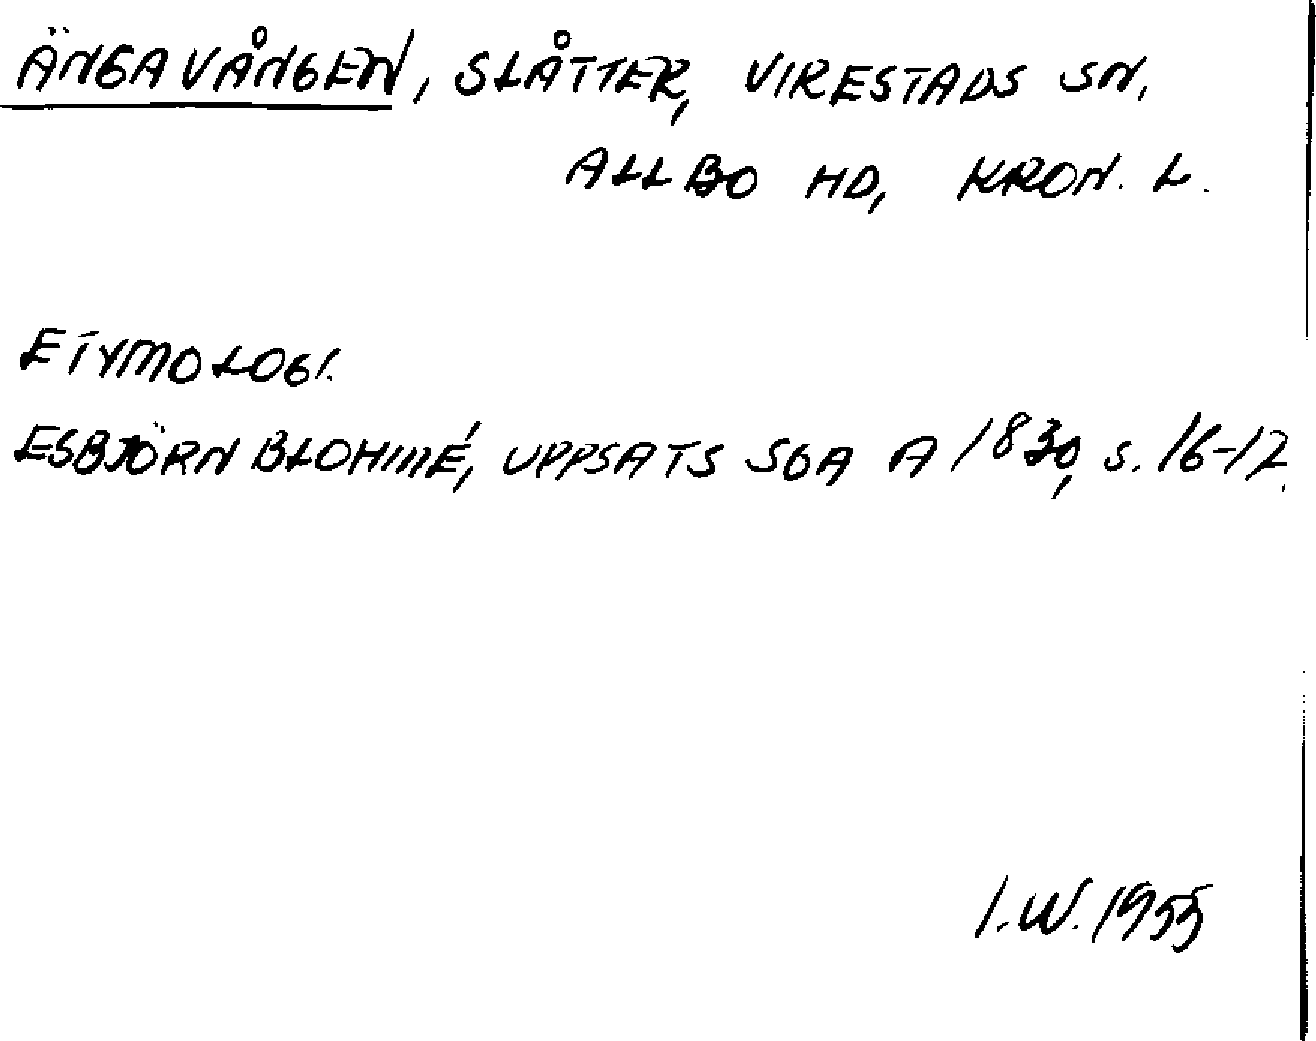 ÄNGAVÅNGEN, SLÅTTER, VIRESTADS SN.
ALLBO HD, KRON. L.
ETYMOLOGI.
ESBJÖRN BLOHMÉ, UPPSATS SGA A 1830, s. 16-17.
I.W. 1955